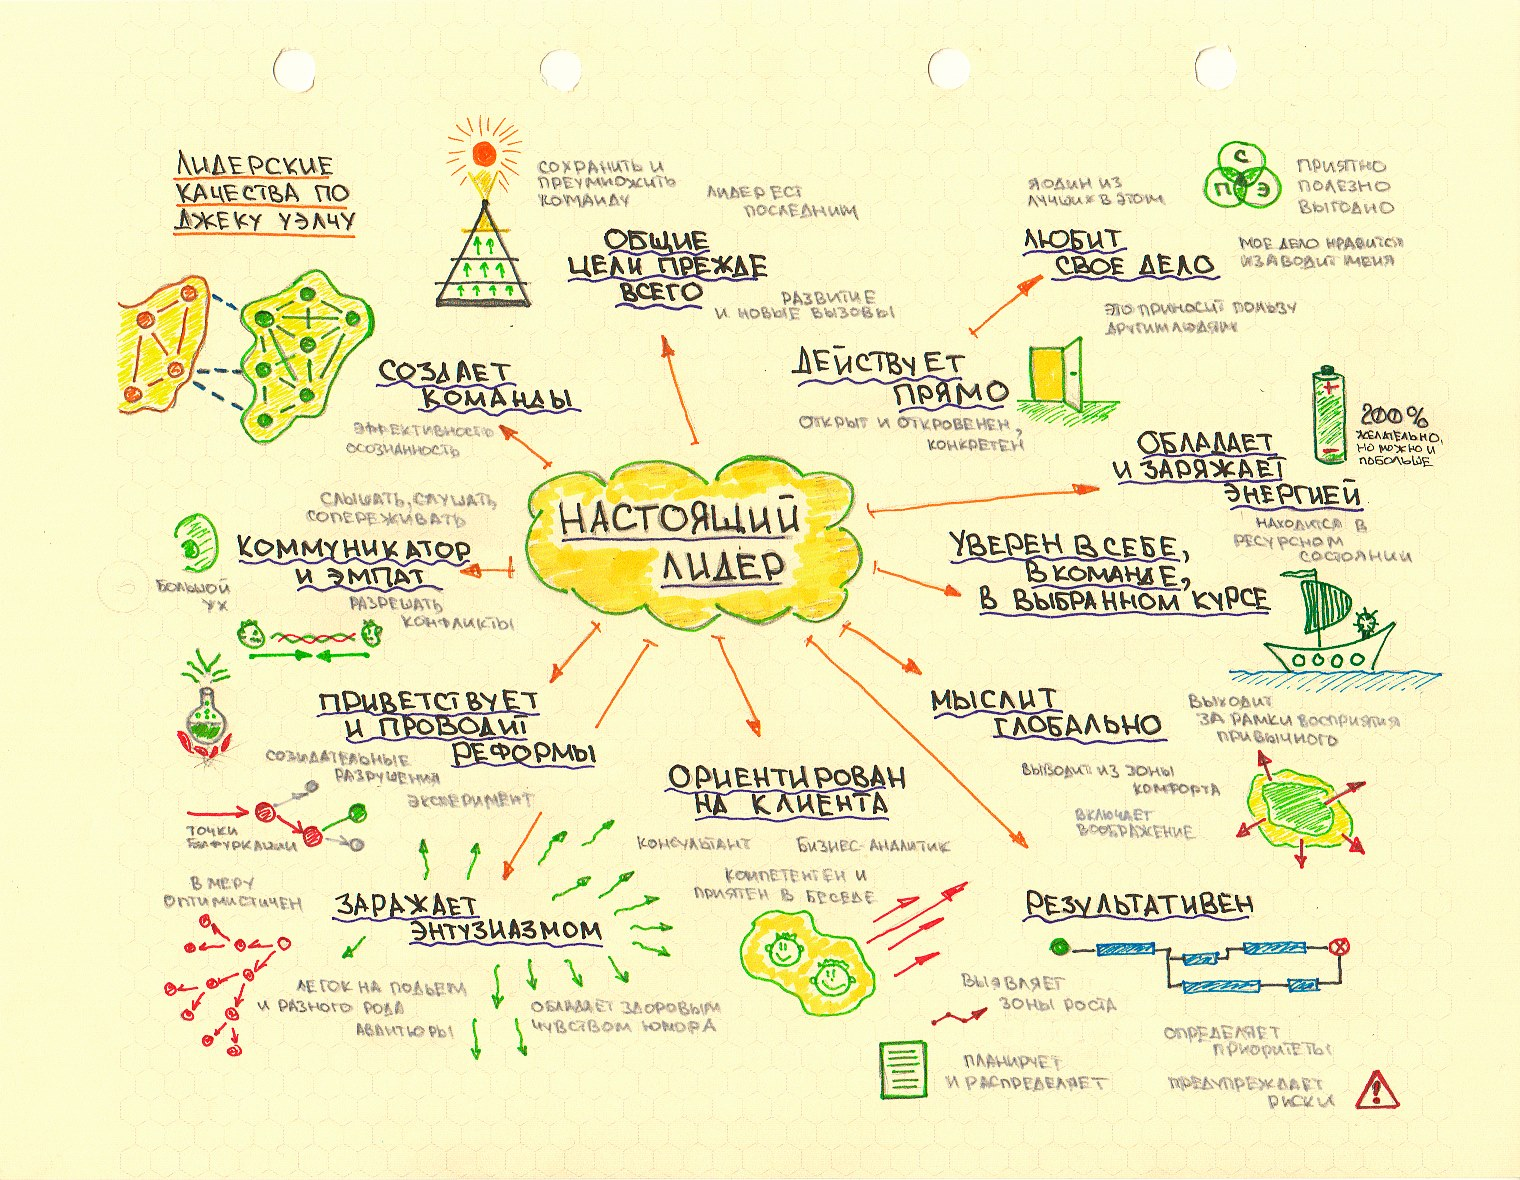 ЛИДЕРСКИЕ
КАЧЕСТВА ПО
ДЖЕКУ УЭЛЧУ
СОХРАНИТЬ И
ПРЕУМНОЖИТЬ
КОМАНДУ
ЛИДЕР ЕСТ
ПОСЛЕДНИМ
ОБЩИЕ
ЦЕЛИ ПРЕЖДЕ
ВСЕГО
РАЗВИТИЕ
И НОВЫЕ ВЫЗОВЫ
Я ОДИН ИЗ
ЛУЧШИХ В ЭТОМ
С
П Э
ПРИЯТНО
ПОЛЕЗНО
ВЫГОДНО
ЛЮБИТ
СВОЕ ДЕЛО
МОЕ ДЕЛО НРАВИТСЯ
И ЗАВОДИТ МЕНЯ
ЭТО ПРИНОСИТ ПОЛЬЗУ
ДРУГИМ ЛЮДЯМ
СОЗДАЕТ
КОМАНДЫ
ЭФФЕКТИВНОСТЬ
ОСОЗНАННОСТЬ
ДЕЙСТВУЕТ
ПРЯМО
ОТКРЫТ И ОТКРОВЕНЕН,
КОНКРЕТЕН
ОБЛАДАЕТ
И ЗАРЯЖАЕТ
ЭНЕРГИЕЙ
+
200%
ЖЕЛАТЕЛЬНО,
НО МОЖНО И
ПОБОЛЬШЕ
НАХОДИТСЯ В
РЕСУРСНОМ
СОСТОЯНИИ
НАСТОЯЩИЙ
ЛИДЕР
СЛЫШАТЬ, СЛУШАТЬ,
СОПЕРЕЖИВАТЬ
КОММУНИКАТОР
И ЭМПАТ
БОЛЬШОЙ
УХ
РАЗРЕШАТЬ
КОНФЛИКТЫ
УВЕРЕН В СЕБЕ,
В КОМАНДЕ,
В ВЫБРАННОМ КУРСЕ
ПРИВЕТСТВУЕТ
И ПРОВОДИТ
РЕФОРМЫ
СОЗИДАТЕЛЬНЫЕ
РАЗРУШЕНИЯ
ЭКСПЕРИМЕНТ
ТОЧКИ
БИФУРКАЦИИ
МЫСЛИТ
ГЛОБАЛЬНО
ВЫХОДИТ
ЗА РАМКИ ВОСПРИЯТИЯ
ПРИВЫЧНОГО
ВЫВОДИТ ИЗ ЗОНЫ
КОМФОРТА
ВКЛЮЧАЕТ
ВООБРАЖЕНИЕ
ОРИЕНТИРОВАН
НА КЛИЕНТА
КОНСУЛЬТАНТ
БИЗНЕС-АНАЛИТИК
КОМПЕТЕНТЕН И
ПРИЯТЕН В БЕСЕДЕ
В МЕРУ
ОПТИМИСТИЧЕН
ЗАРАЖАЕТ
ЭНТУЗИАЗМОМ
ЛЕГОК НА ПОДЬЕМ
И РАЗНОГО РОДА
АВАНТЮРЫ
ОБЛАДАЕТ ЗДОРОВЫМ
ЧУВСТВОМ ЮМОРА
РЕЗУЛЬТАТИВЕН
ВЫЯВЛЯЕТ
ЗОНЫ РОСТА
ОПРЕДЕЛЯЕТ
ПРИОРИТЕТЫ
ПЛАНИРУЕТ
И РАСПРЕДЕЛЯЕТ
ПРЕДУПРЕЖДАЕТ
РИСКИ
!